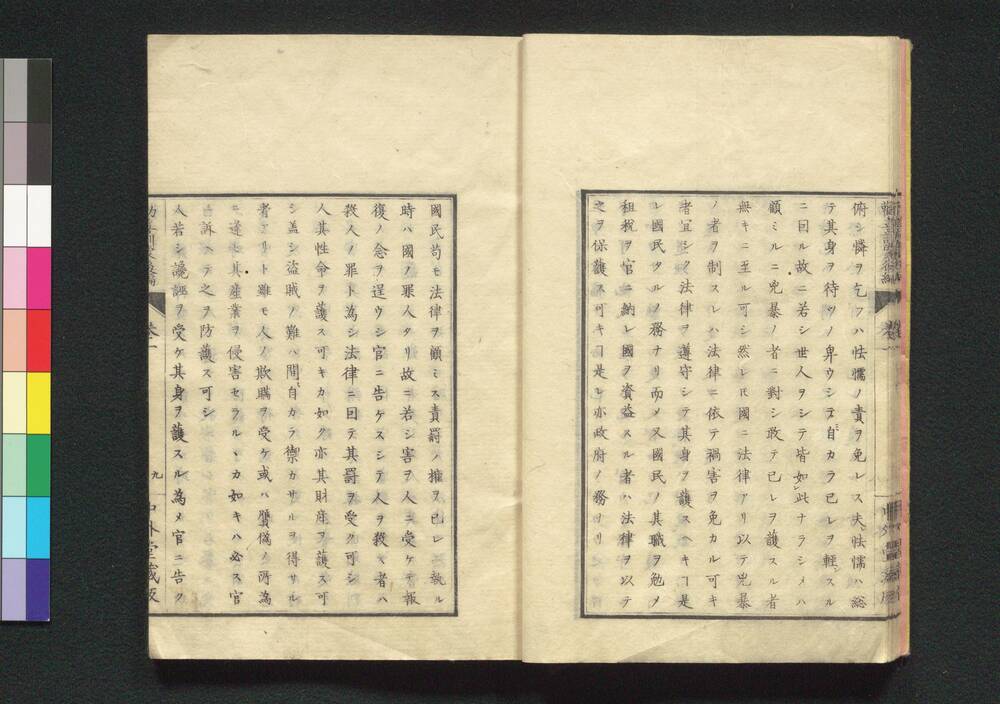 俯シ憐ヲ乞フハ怯懦ノ責ヲ免レス夫怯懦ハ総
テ其身ヲ待ツノ卑ウシテ自カラ已レヲ軽スル
ニ因ル故ニ若シ世人ヲシテ皆如此ナラシメハ
顧ミルニ兇暴ノ者ニ對シ敢テ已レヲ護スル者
無キニ至ル可シ然レ𪜈國ニ法律アリ以テ兇暴
ノ者ヲ制スレハ法律ニ依テ禍害ヲ免カル可キ
者宜シク法律ヲ遵守シテ其身ヲ護スヘキヿ是
レ國民タルノ務ナリ而メ又國民ノ其職ヲ勉メ
租税ヲ官ニ納レ國ヲ資益スル者ハ法律ヲ以テ
之ヲ保護ス可キヿ是レ亦政府ノ務ヨリ
國民苟モ法律ヲ顧ミス責罰ノ權ヲ已レニ執ル
時ハ國ノ罪人タリ故ニ若シ害ヲ人ニ受ケテ報
復ノ念ヲ逞ウシ官ニ告ケスシテ人ヲ殺ス者ハ
殺人ノ罪ト為シ法律ニ因テ其罰ヲ受ク可シ
人其性命ヲ護ス可キカ如ク亦其財産ヲ護ス可
シ盖シ盗賊ノ難ハ間自カラ禦カサルヲ得サル
者アリト雖モ人ノ欺瞞ヲ受ケ或ハ贋偽ノ所為
ニ逢ヒ其産業ヲ侵害セラルヽカ如キハ必ス官
ニ訴ヘテ之ヲ防護ス可シ
人若シ讒誣ヲ受ケ其身ヲ護スル為メ官ニ告ク
卷一
九
中外堂蔵版